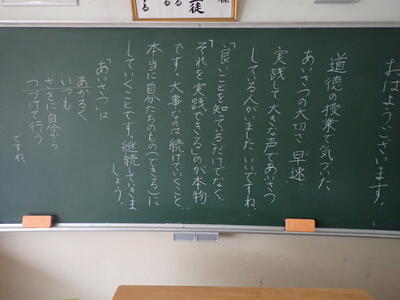 おはようございます。
道徳の授業で気づいた
あいさつの大切さ、早速
実践して大きな声であいさつ
している人がいました。いいですね。
「良いことを知っているだけでなく、
それを実践できる」のが本物
です。大事なのは続けていくこと。
本当に自分たちのもの(できる)に
していくことです。継続していきま
しょう。
「あいさつ」は
あかるく
いつも
さきに自分から
つづけて行う
ですね。